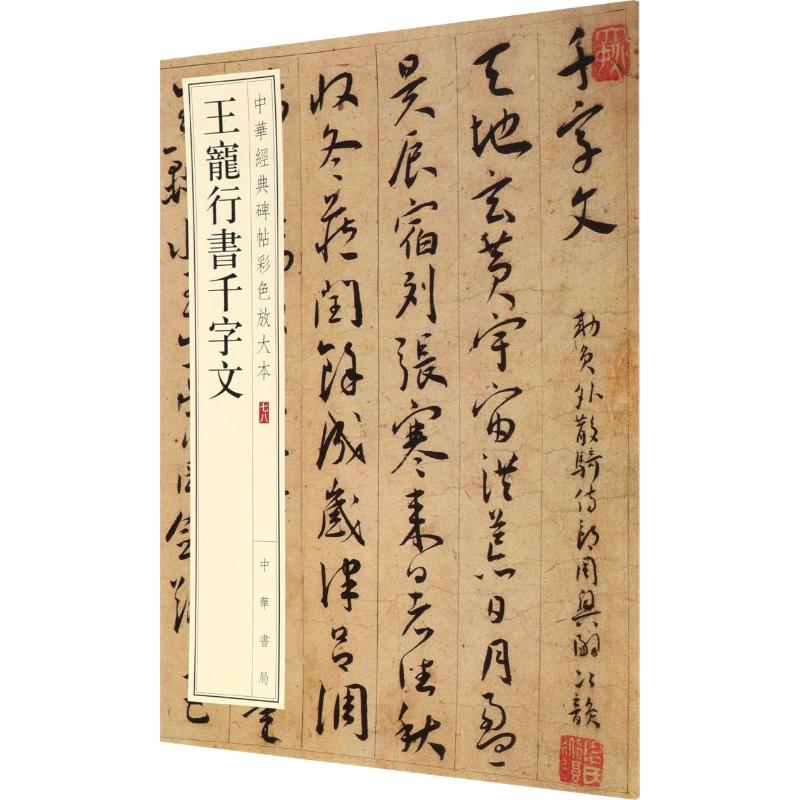 千字文
勅員外散騎侍郎周興嗣次韻
天地玄黄宇宙洪荒日月盈
昃辰宿列張寒来暑往秋
收冬蔵閏餘成歲律吕調
中華經典碑帖彩色放大本 七八
中華書局
王寵行書千字文